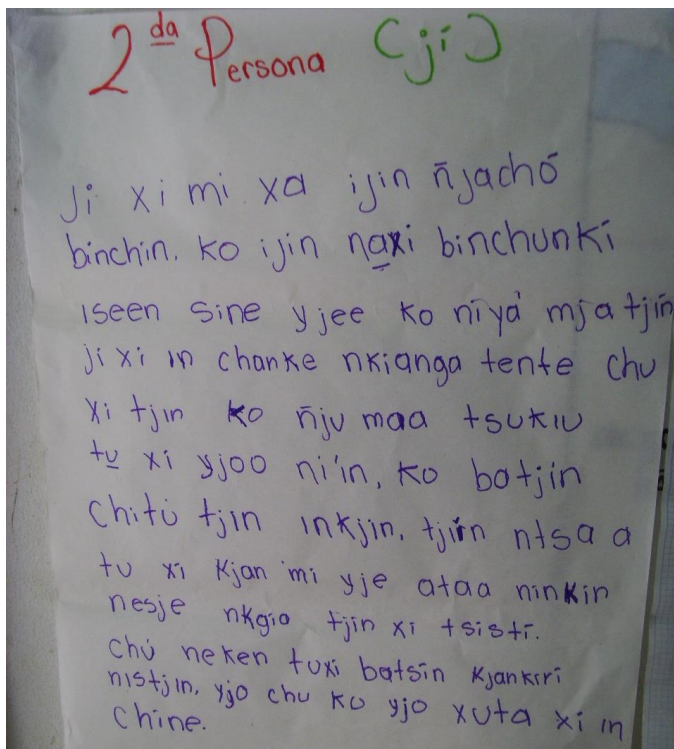 2da Persona (ji)
Ji xi mi xa ijin ñjachó
binchin. ko ijin na̱xi binchunkí
iseen sine yjee ko níyá mja tjín
ji xi in chanke nkianga tente chu
xi tjin ko ñju maa tsukiu
tu̱ xi yjoo ni'in, ko batjin
chitú tjin inkjin. tjín ntsa a
tu xi kjan mi yje ataa ninkin
nesje nkgio tjin xi tsistí.
chú neken tuxi batsin kjankirí
nistjin. yjo chu ko yjo xuta xi in
chine.